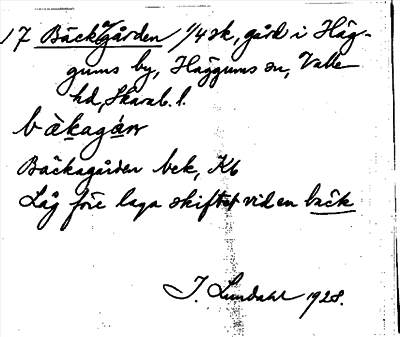 17 Bäckagården 1/4 sk, gård i Häg-
gums by, Häggums sn, Valle
hd, Skarab. l.
bàkagáṙ
Bäckagården bek, Kb
Låg före laga skiftet vid en bäck
J. Lundahl 1928.